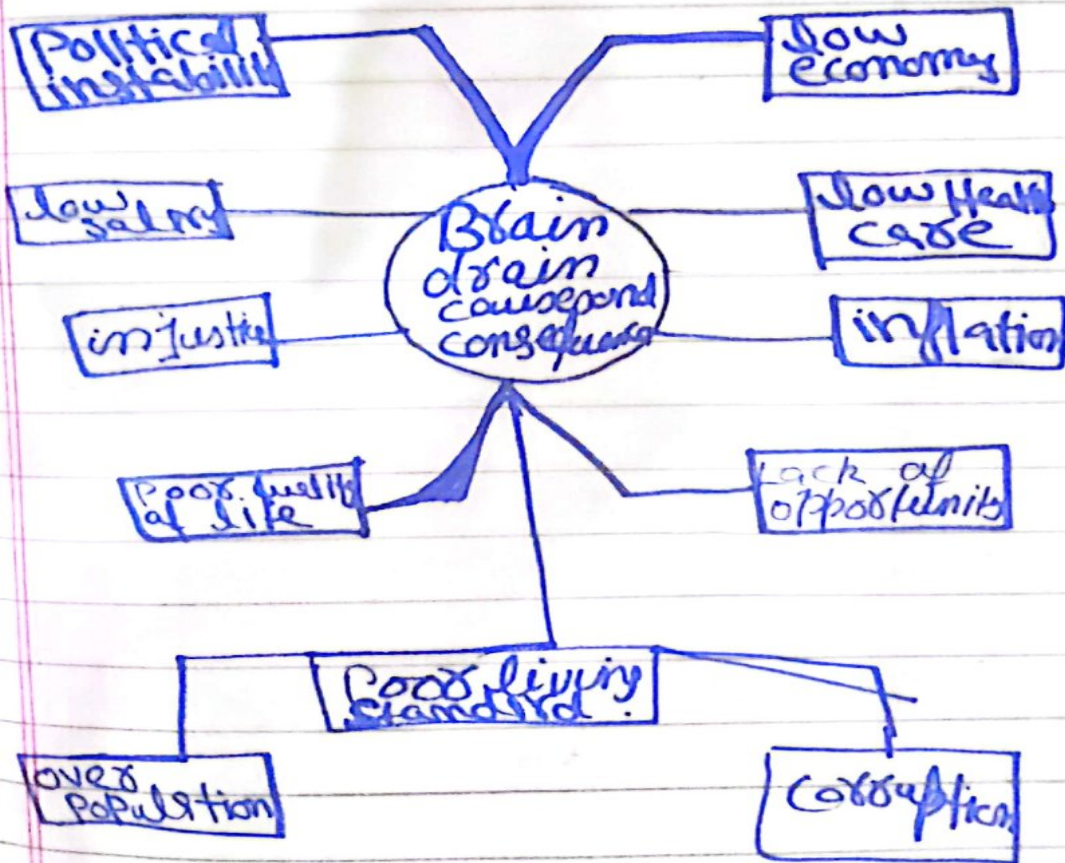 Political
instability
low
economy
low
salry
low Health
care
Brain
drain
causepand
consequence
injustie
inflation
Poor quality
of life
Lack of
opportunity
Poor living
standird.
over
populstion
Corruption